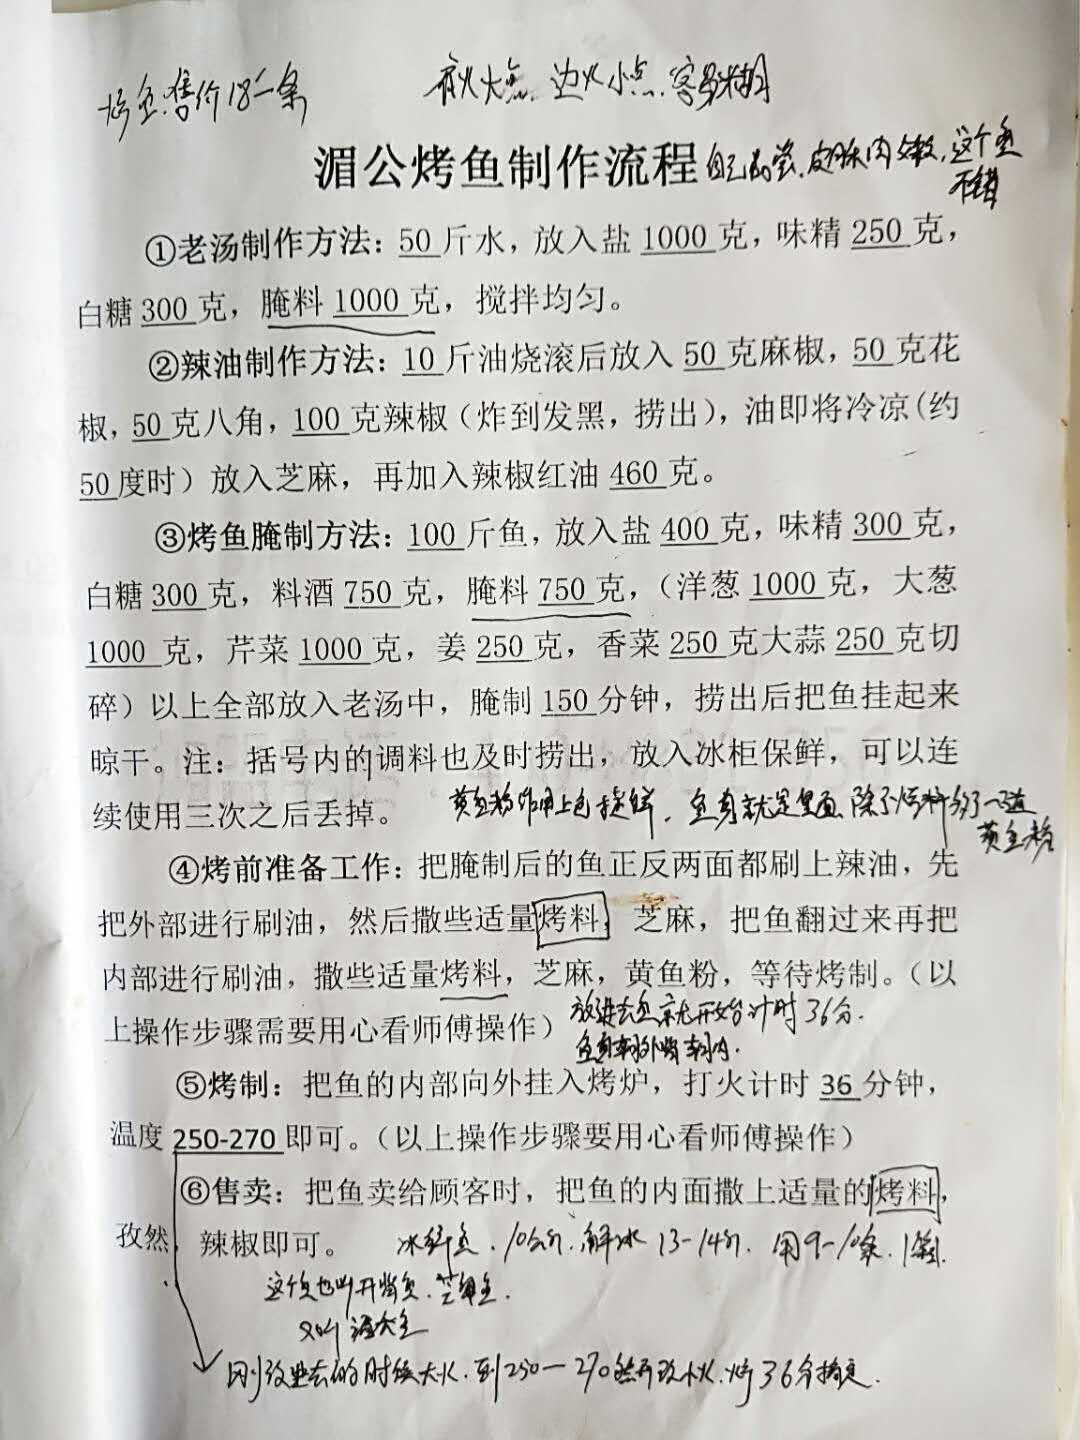 烤鱼售价18一条
火大 边火小点 容易糊
湄公烤鱼制作流程
自己品尝,皮 肉 ,这个鱼
不错
①老汤制作方法：50斤水，放入盐1000克，味精250克，
白糖300克，腌料1000克，搅拌均匀。
②辣油制作方法：10斤油烧滚后放入50克麻椒，50克花
椒，50克八角，100克辣椒（炸到发黑，捞出），油即将冷凉(约
50度时）放入芝麻，再加入辣椒红油460克。
③烤鱼腌制方法：100斤鱼，放入盐400克，味精300克，
白糖300克，料酒750克，腌料750克，（洋葱1000克，大葱
1000克，芹菜1000克，姜250克，香菜250克大蒜250克切
碎）以上全部放入老汤中，腌制150分钟，捞出后把鱼挂起来
晾干。注：括号内的调料也及时捞出，放入冰柜保鲜，可以连
续使用三次之后丢掉。
黄鱼粉作用上色提鲜,鱼身就是里面,除了烤料 了一道
黄鱼粉
④烤前准备工作：把腌制后的鱼正反两面都刷上辣油，先
把外部进行刷油，然后撒些适量烤料，芝麻，把鱼翻过来再把
内部进行刷油，撒些适量烤料，芝麻，黄鱼粉，等待烤制。（以
上操作步骤需要用心看师傅操作）
放进去鱼就开始计时36分.
鱼身朝外嘴朝内.
⑤烤制：把鱼的内部向外挂入烤炉，打火计时36分钟，
温度250-270即可。（以上操作步骤要用心看师傅操作）
⑥售卖：把鱼卖给顾客时，把鱼的内面撒上适量的烤料，
孜然，辣椒即可。
冰鲜鱼.10公斤.解冰13-14斤.用9-10条.1箱.
这个鱼也叫开背鱼.
又叫
刚放进去的时候大火.到250-270然后改小火.烤36分搞定.